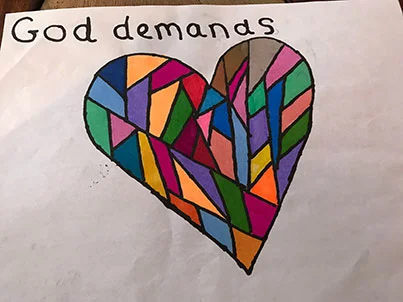 God demands